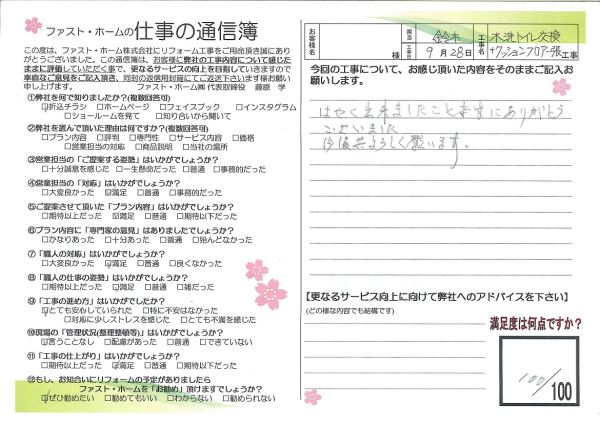 ファスト・ホームの仕事の通信簿
この度は、ファスト・ホーム株式会社にリフォーム工事をご用命頂き誠にあり
がとうございました。この通信簿は、お客様に弊社の工事内容について感じた
ままに評価していただく事で、更なるサービスの向上を目指していきますので
率直なご意見をご記入頂き、同封の返信用封筒にてご返送下さいます様お願い
申し上げます。 ファスト・ホーム㈱ 代表取締役 藤原 学
①弊社を何で知りましたか?(複数回答可)
☑折込チラシ □ホームページ □フェイスブック □インスタグラム
□ショールームを見て □知り合いから聞いて
②弊社を選んで頂いた理由は何ですか?(複数回答可)
□プラン内容 □評判 □専門性 □サービス内容 □価格
□営業担当の対応 □商品説明 □当社の場所
③営業担当の「ご提案する姿勢」はいかがでしょうか?
□十分誠意を感じた □一生懸命だった □普通 □事務的だった
④営業担当の「対応」はいかがでしょうか?
□大変良かった ☑満足 □普通 □事務的だった
⑤ご提案させて頂いた「プラン内容」はいかがでしょうか?
□期待以上だった ☑満足 □普通 □期待以下だった
⑥プラン内容に「専門家の意見」はありましたでしょうか?
□かなりあった □十分あった □普通 □殆んどなかった
⑦「職人の対応」はいかがでしょうか?
□大変良かった ☑満足 □普通 □良くなかった
⑧「職人の仕事の姿勢」はいかがでしょうか?
□期待以上だった ☑満足 □普通 □雑だった
⑨「工事の進め方」はいかがでしょうか?
☑とても安心していられた □特に不安はなかった
□対応に少しストレスを感じた □とても不満を感じた
⑩現場の「管理状況(整理整頓等)」はいかがでしょうか?
☑言うことなし □配慮があった □普通 □できていない
⑪「工事の仕上がり」はいかがでしょうか?
□期待以上だった ☑満足 □普通 □期待以下だった
⑫もし、お知合いにリフォームの予定がありましたら
ファスト・ホームを「お勧め」頂けますでしょうか?
☑ぜひ勧めたい □勧めてもいい □わからない □勧められない
お客様名 様
担当 鈴木
工事日 9月28日
工事名 水洗トイレ交換
+クッションフロアー張 工事
今回の工事について、お感じ頂いた内容をそのままご記入お
願いします。
はやく出来ましたこと幸にありがとう
ございました
今後共よろしく願います。
【更なるサービス向上に向けて弊社へのアドバイスを下さい】
(どの様な内容でも結構です)
満足度は何点ですか?
100/100